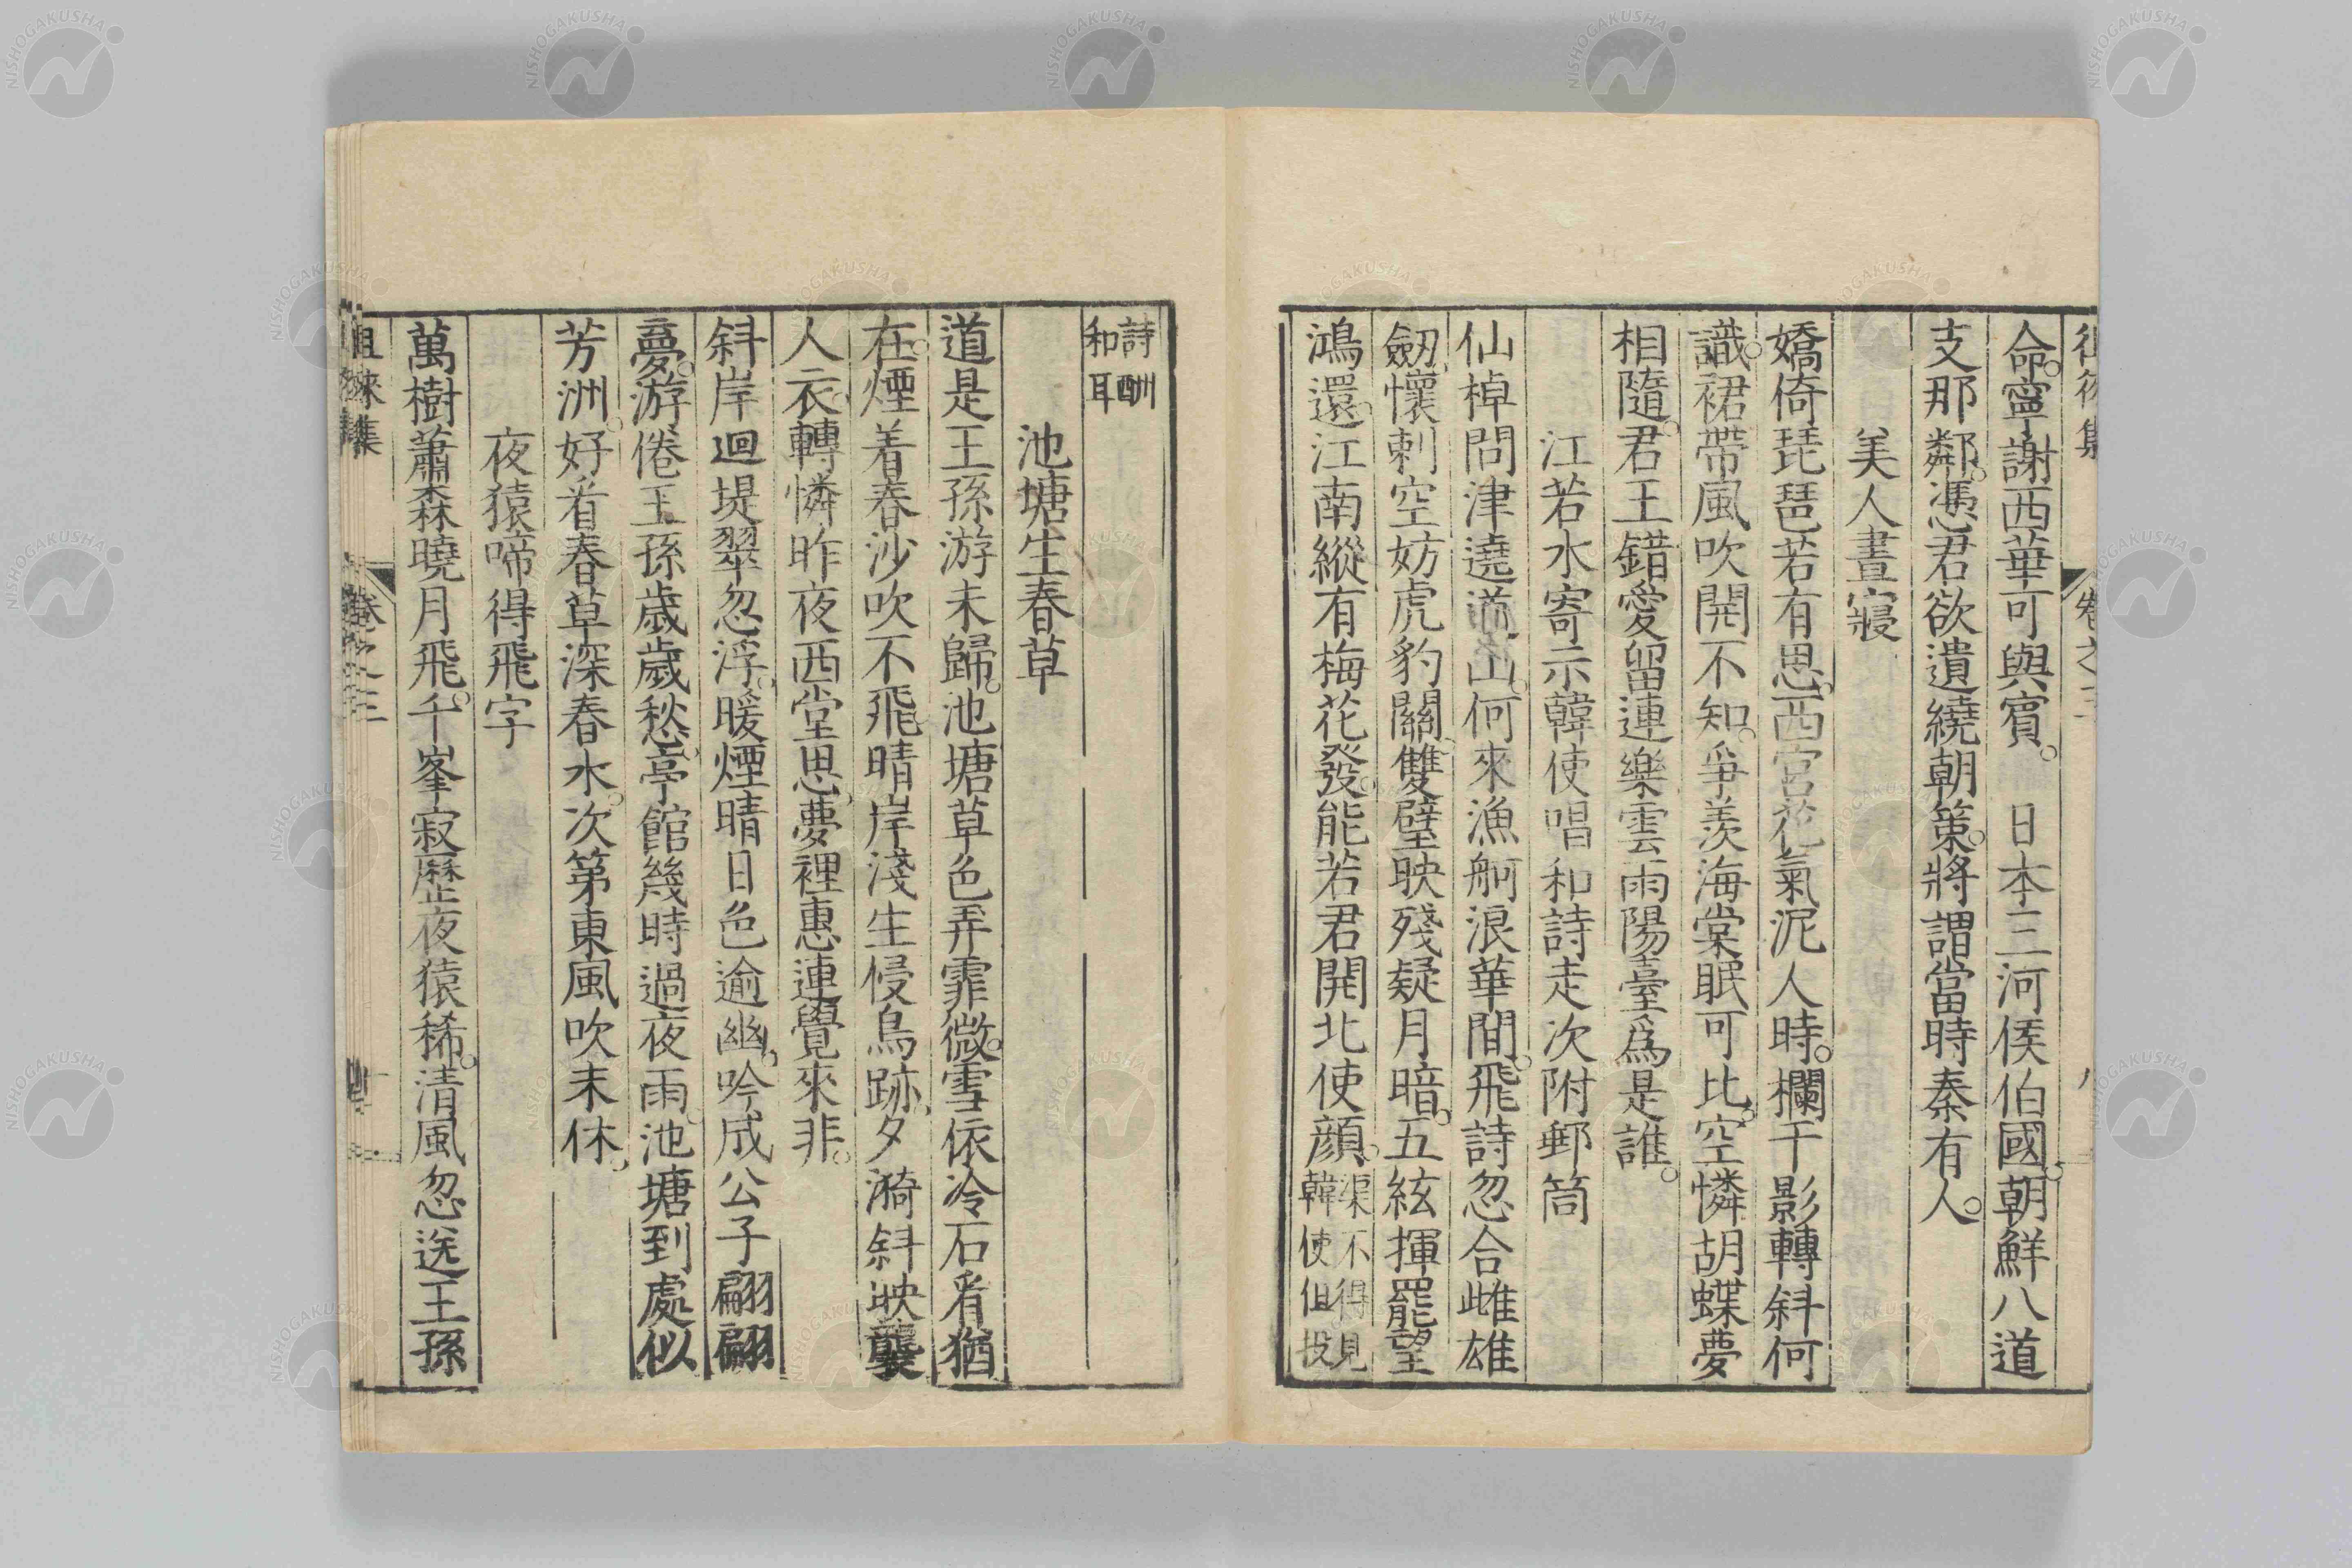 徂徠集 卷之三 八
命寧謝西華可與賓 日本三河侯伯國朝鮮八道
支那鄰憑君欲遺繞朝策將謂當時秦有人
美人晝寢
嬌倚琵琶若有思西宮花氣泥人時欄干影轉斜何
識裙帶風吹開不知爭羨海棠眠可比空憐胡蝶夢
相隨君王錯愛留連樂雲雨陽臺爲是誰
江若水寄示韓使唱和詩走次附郵筒
仙棹問津遶道山何來漁舸浪華間飛詩忽合雌雄
劒懷刺空妨虎豹關雙璧映殘疑月暗五絃揮罷望
鴻還江南縱有梅花發能若君開北使顏渠不得見
韓使但投
詩酬
和耳
池塘生春草
道是王孫游未歸池塘草色弄霏微雪依冷石看猶
在煙着春沙吹不飛晴岸淺生侵鳥跡夕漪斜映襲
人衣轉憐昨夜西堂思夢裡惠連覺來非
斜岸迴堤翠忽浮暖煙晴日色逾幽吟成公子翩翩
夢游倦王孫歲歲愁亭館幾時過夜雨池塘到處似
芳洲好看春草深春水次第東風吹未休
夜猿啼得飛字
萬樹蕭森曉月飛千峯寂歷夜猿稀清風忽送王孫
徂徠集 卷之三
NISHOGAKUSHA